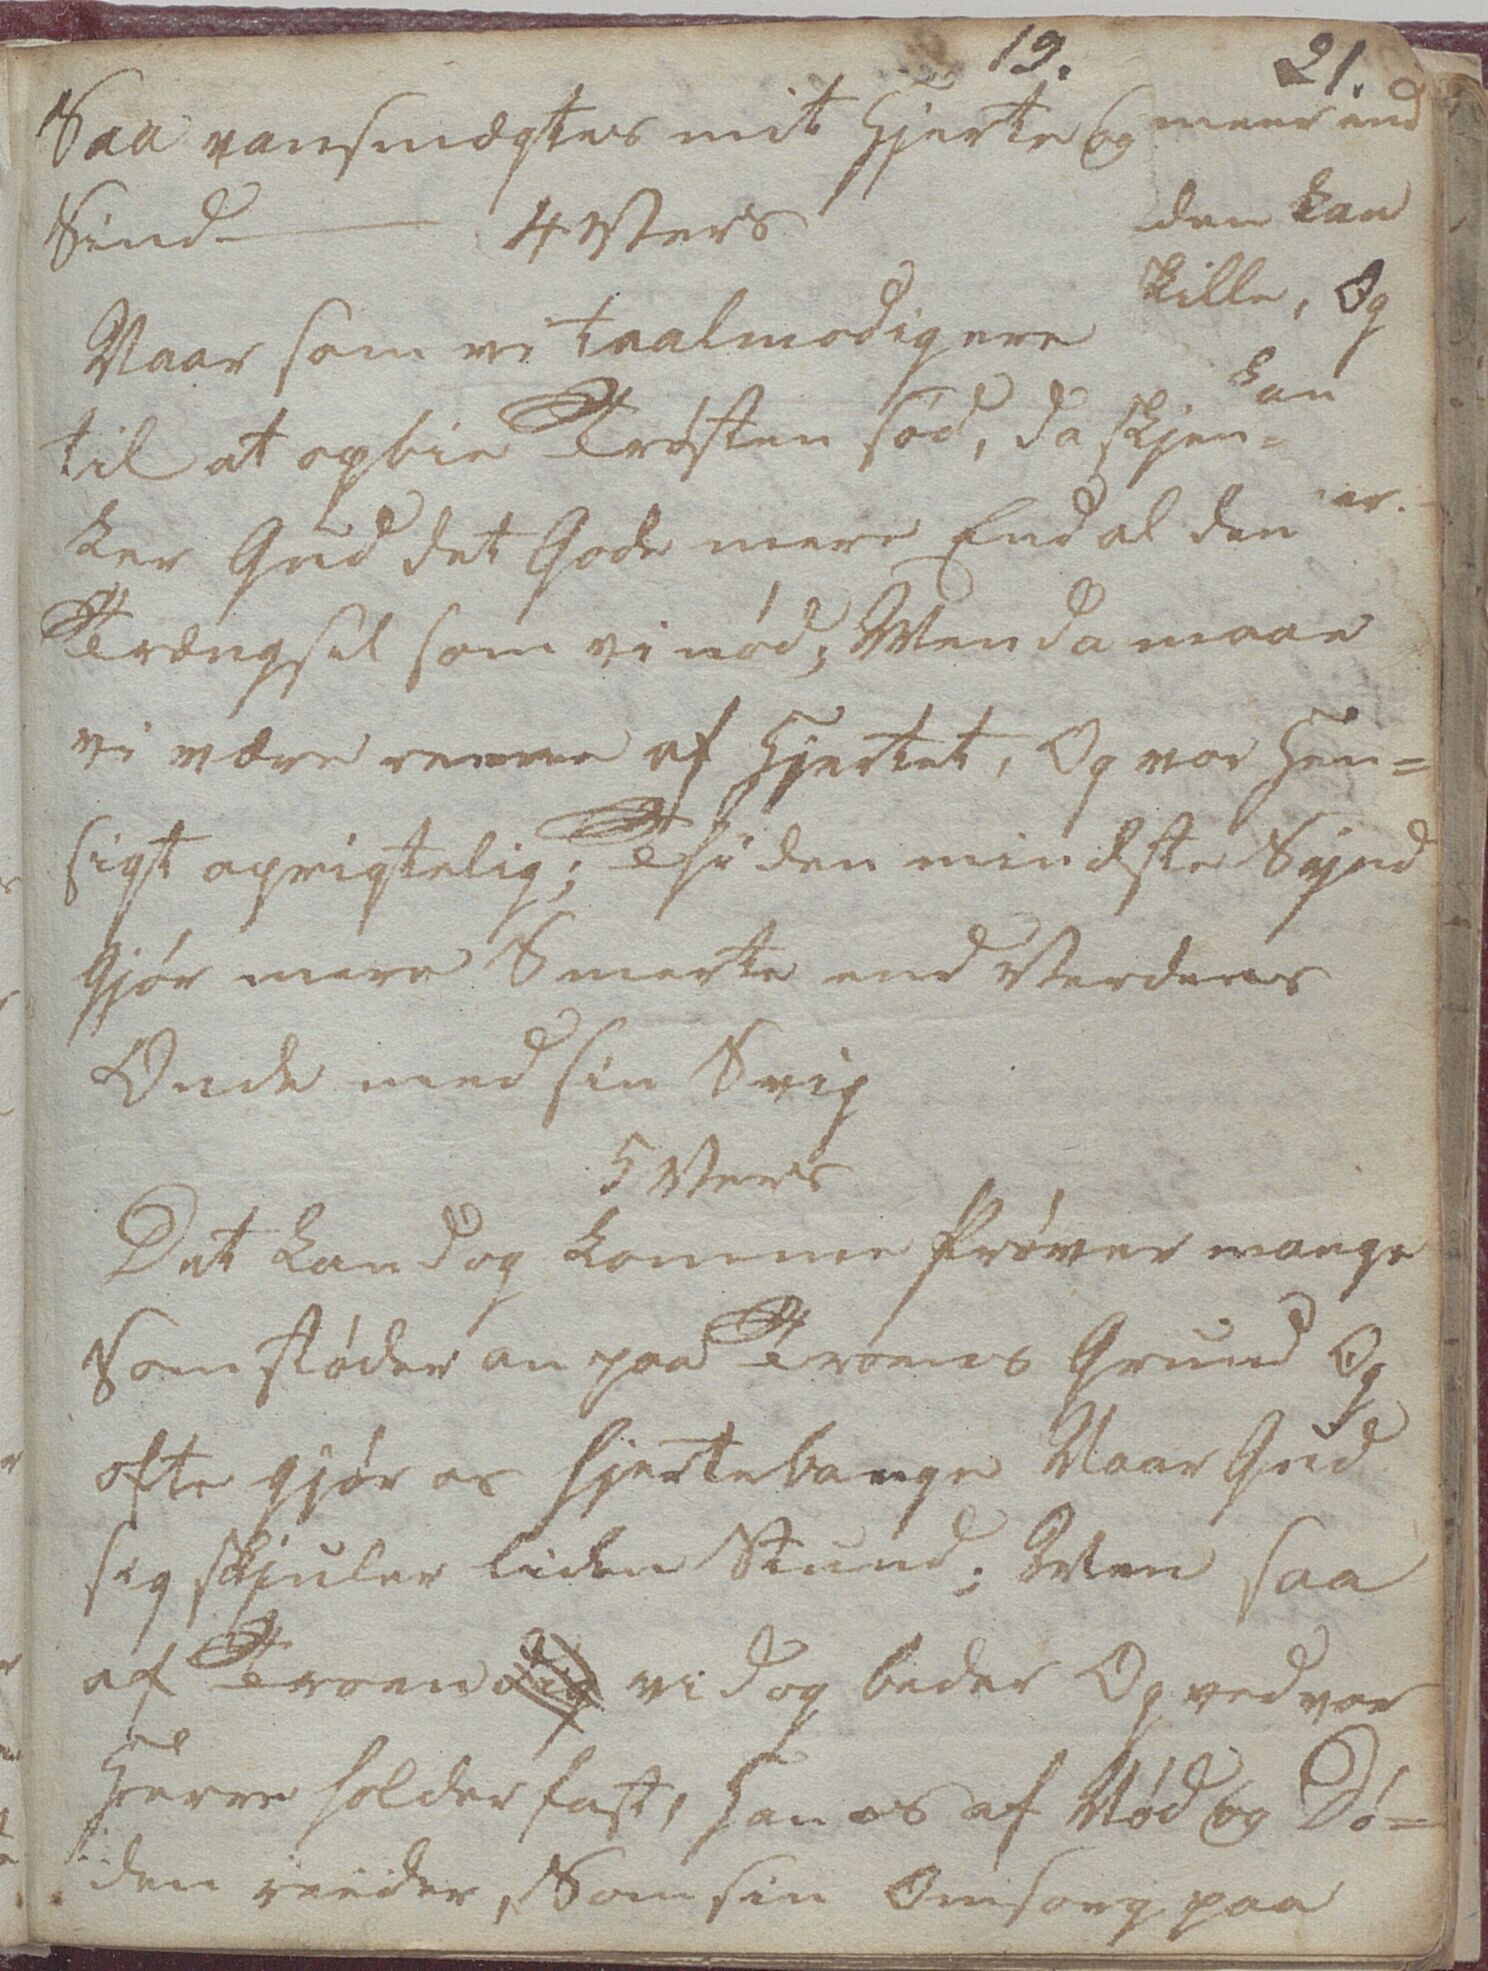 19. 21.
Saa vansmægtes mit Hjerte og
Sind 4 Vers
Naar som vi taalmodigere
til at opbie Trøsten sød, da skjen-
ker Gud det Gode mere End al den
Trængsel som vi nød; Men da maae
vi være renere af Hjertet, Og vor Hen-
sigt oprigtelig; Thi den mindste Synd
Gjør mere Smerte end Verdens
Onde med sin Svig
5 Vers
Det kand og komme Prøver mange
Som støder an paa Troens Grund Og
ofte gjør os hjertebange Naar Gud
sig skjuler liden Stund; Men saa
af Troen vi dog beder Og ved vor
Herre holder fast, Han os af Nød og Dø-
den reider, Som sin Omsorg paa
meer end
den kan
skille, Og
kan
er.